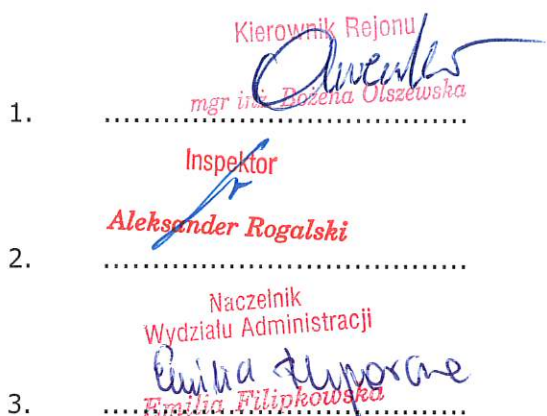 Kierownik Rejonu
mgr inż. Bożena Olszewska
1. ..........................................
Inspektor
Aleksander Rogalski
2. ..........................................
Naczelnik
Wydziału Administracji
Emilia
Emilia Filipkowska
3. ..........................................